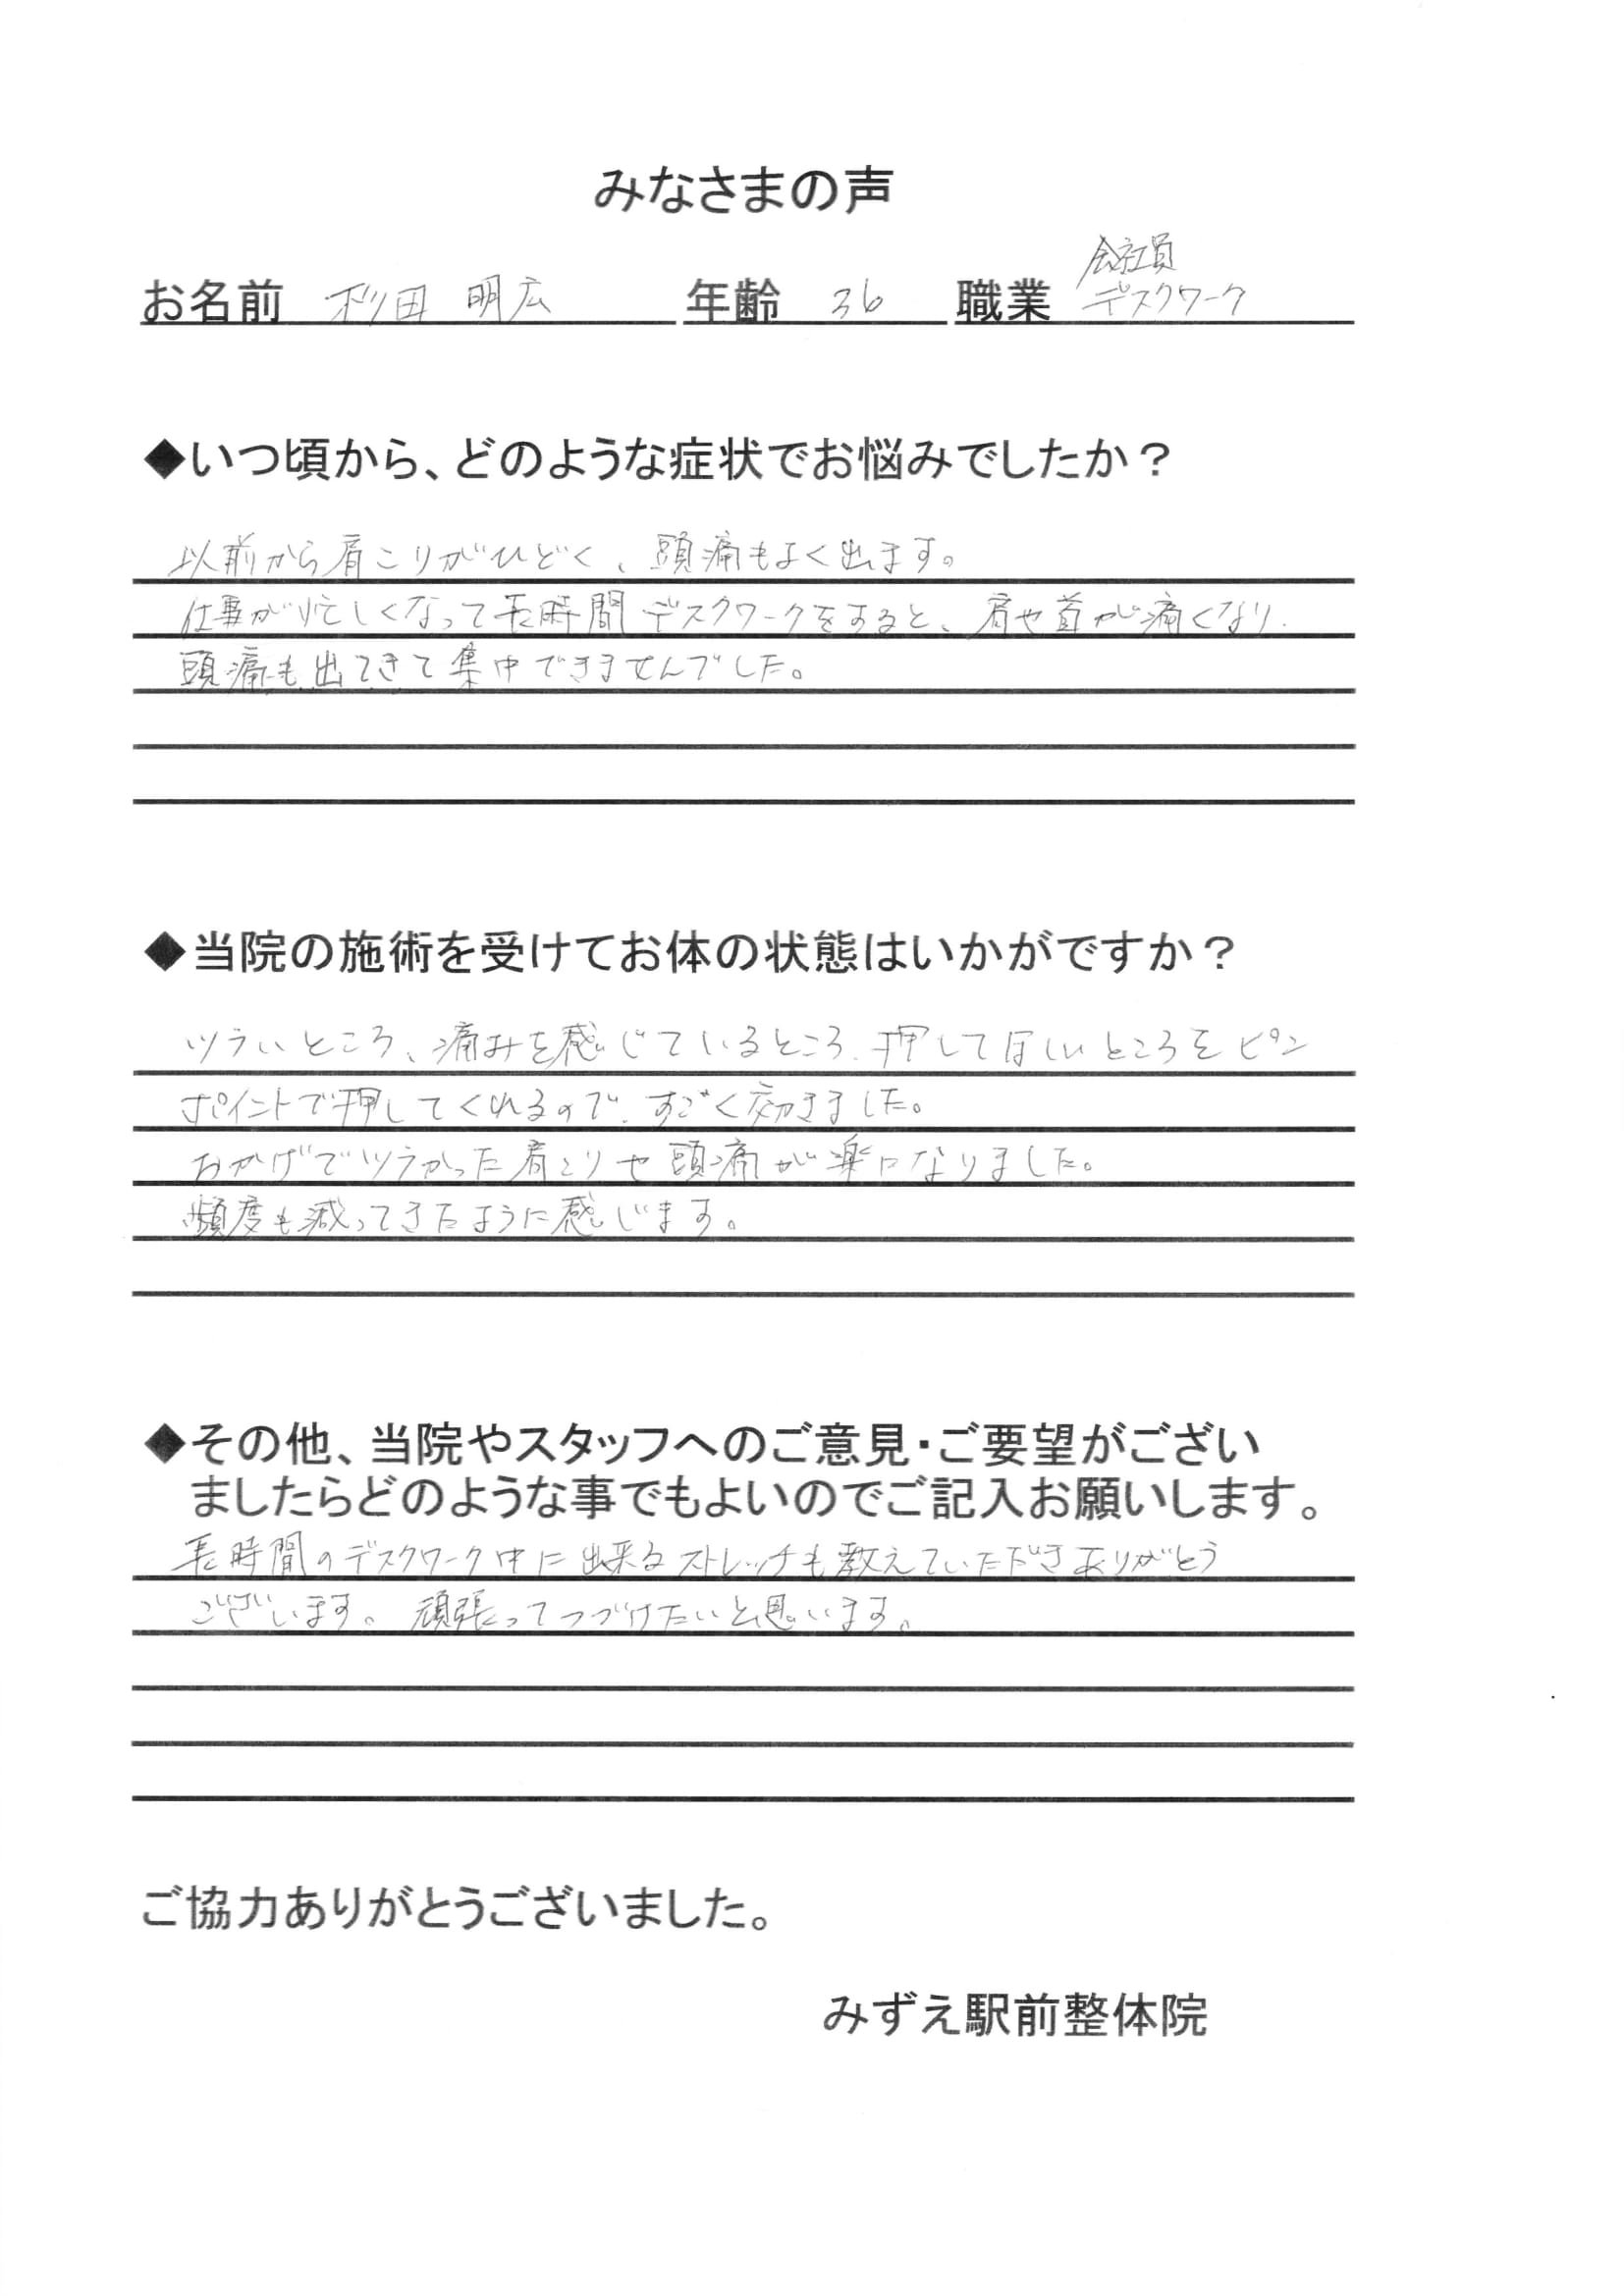 みなさまの声
会社員
お名前 杉田 明広 年齢 36 職業 デスクワーク
◆いつ頃から、どのような症状でお悩みでしたか？
以前から肩こりがひどく、頭痛もよく出ます。
仕事が忙しくなって長時間デスクワークをすると、肩や首が痛くなり、
頭痛も出てきて集中できませんでした。
◆当院の施術を受けてお体の状態はいかがですか？
ツラいところ、痛みを感じているところ、押してほしいところをピン
ポイントで押してくれるので、すごく効きました。
おかげでツラかった肩こりや頭痛が楽になりました。
頻度も減ってきたように感じます。
◆その他、当院やスタッフへのご意見・ご要望がござい
ましたらどのような事でもよいのでご記入お願いします。
長時間のデスクワーク中に出来るストレッチも教えていただきありがとう
ございます。頑張ってつづけたいと思います。
ご協力ありがとうございました。
みずえ駅前整体院